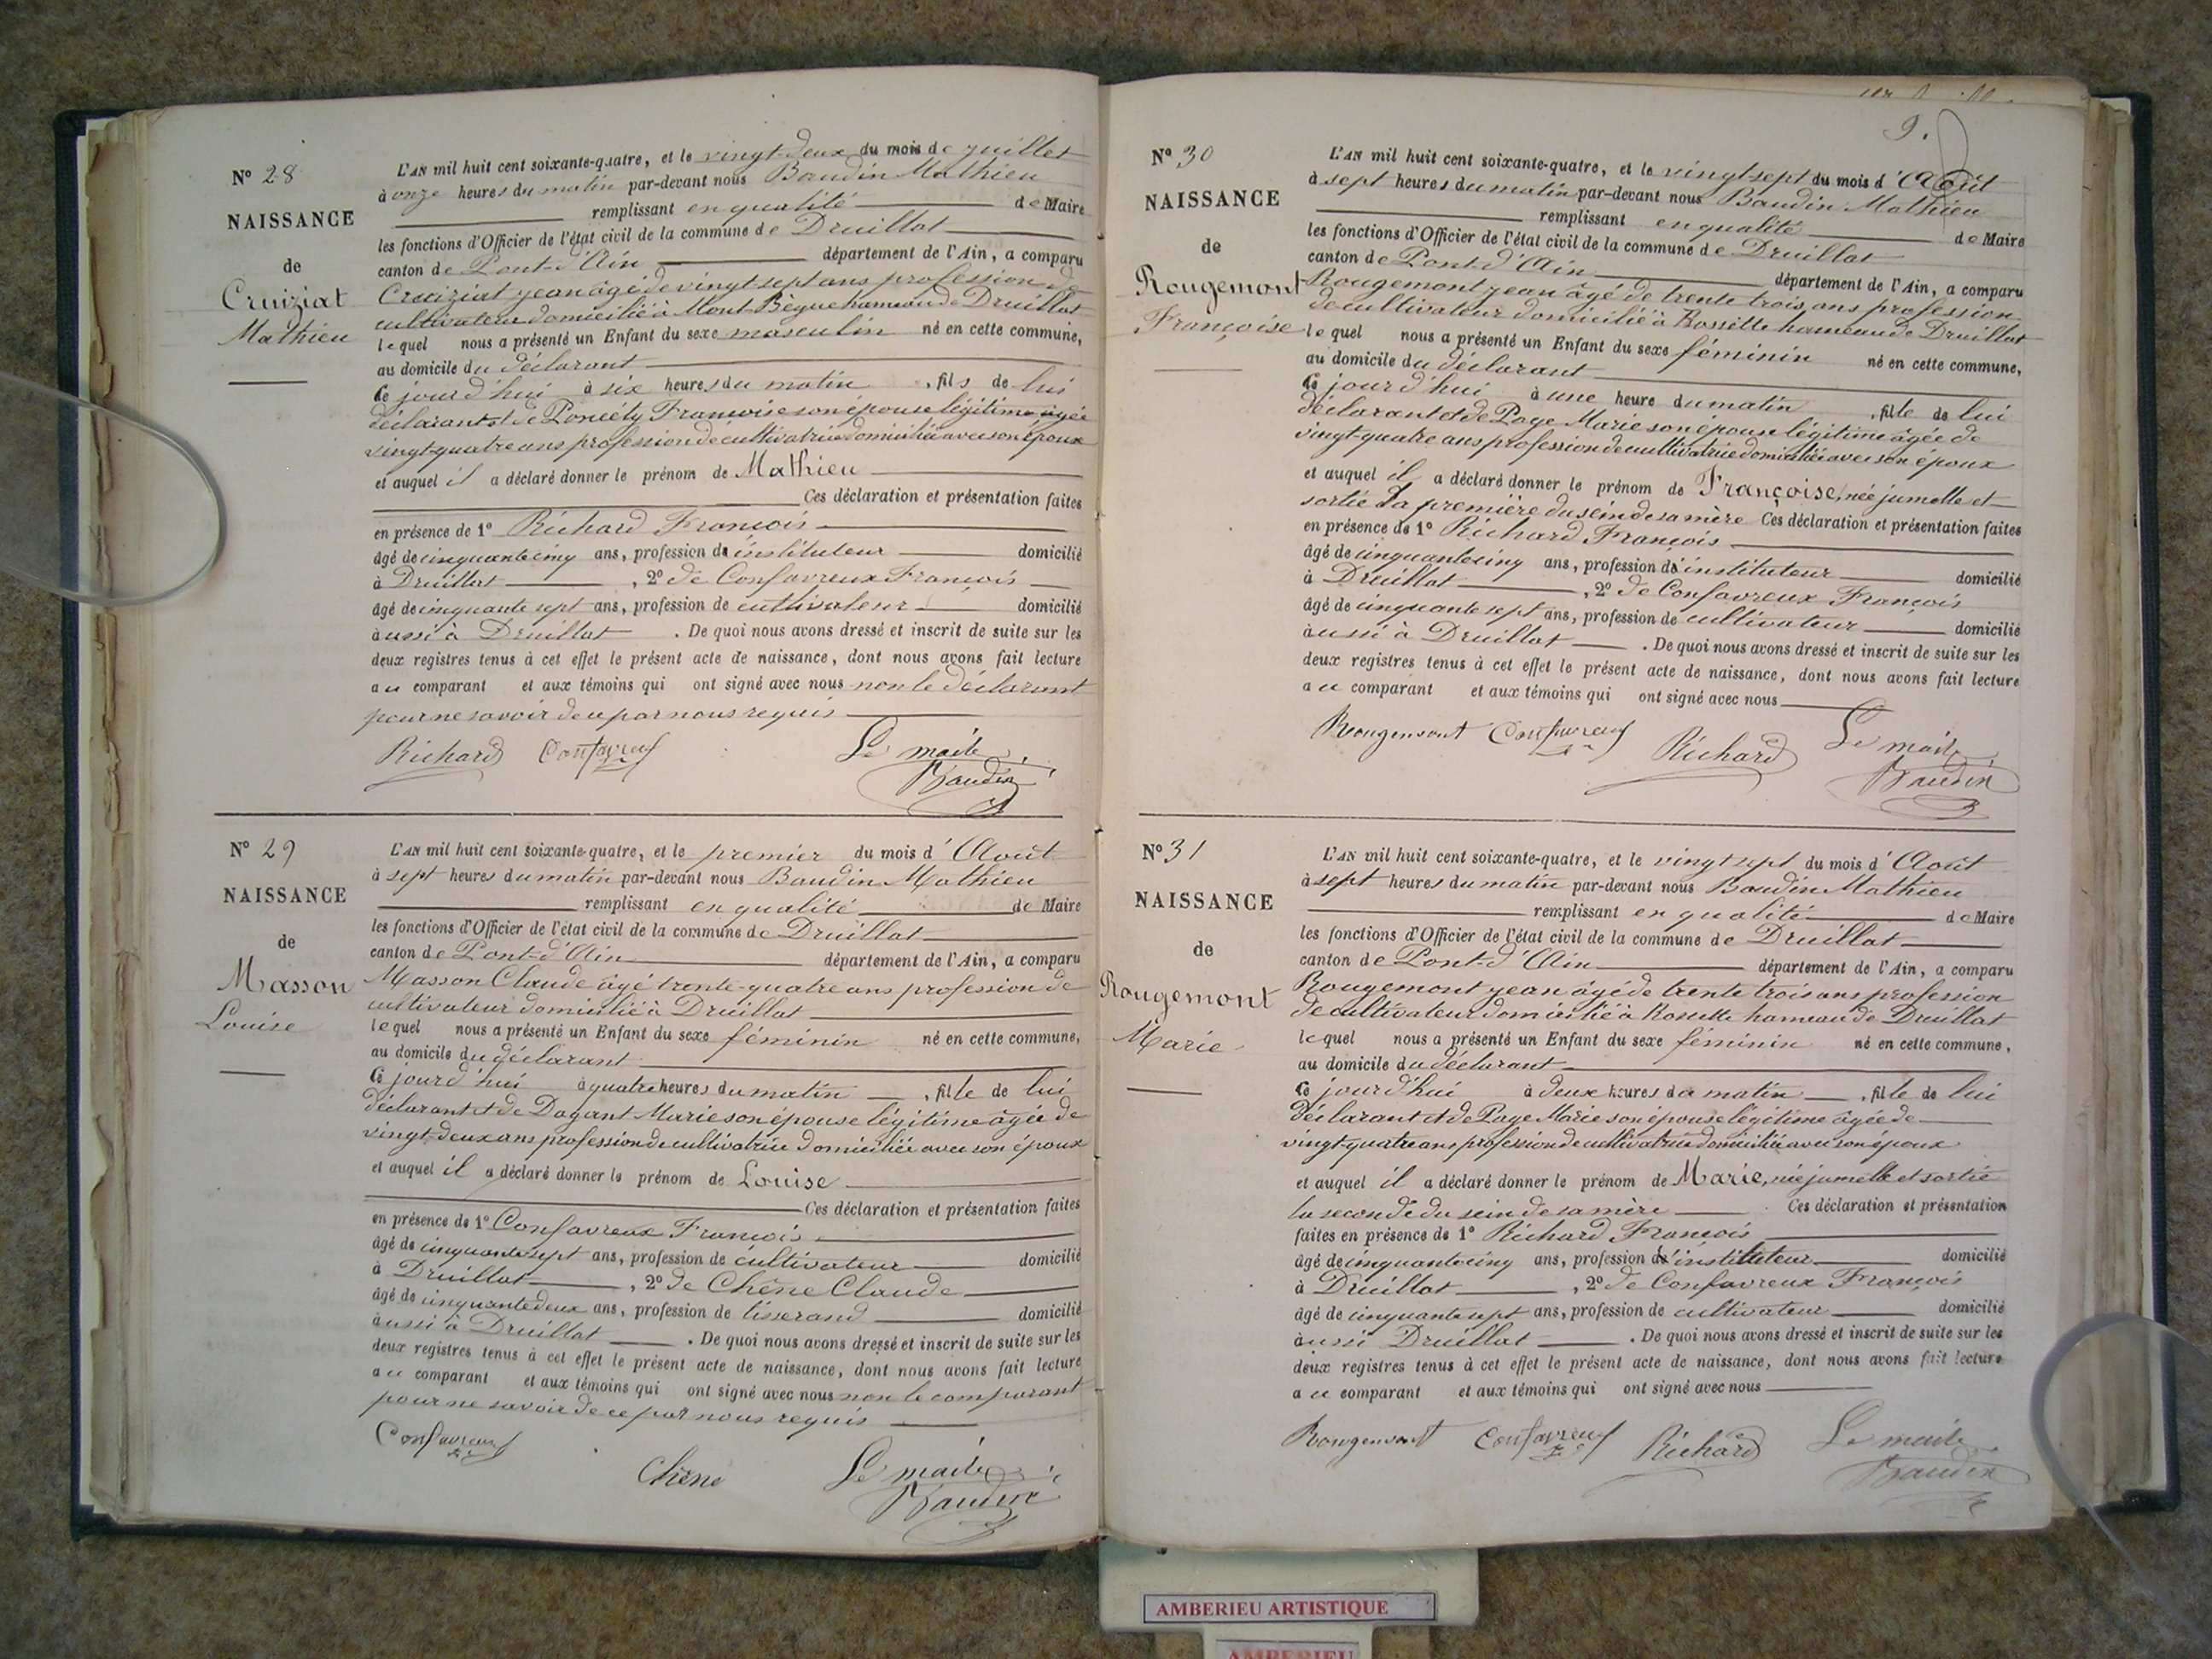 N° 28
NAISSANCE
de
Cruiziat
Mathieu
L'AN mil huit cent soixante-quatre, et le vingt-deux du mois de juillet
à onze heures du matin par-devant nous Baudin Mathieu
remplissant en qualité de Maire
les fonctions d'Officier de l'état civil de la commune de Druillat
canton de Pont-d'Ain département de l'Ain, a comparu
Cruiziat jean âgé de vingt sept ans profession de
cultivateur domicilié à Mont-Bègue hameau de Druillat
lequel nous a présenté un Enfant du sexe masculin né en cette commune,
au domicile du déclarant
Ce jourd'hui à six heures du matin, fils de lui
déclarant et de Poncéty Françoise son épouse légitime âgée
vingt-quatre ans profession de cultivatrice domiciliée avec son époux
et auquel il a déclaré donner le prénom de Mathieu
Ces déclaration et présentation faites
en présence de 1° Richard François
âgé de cinquante cinq ans, profession d'instituteur domicilié
à Druillat, 2° de Confavreux François
âgé de cinquante sept ans, profession de cultivateur domicilié
aussi à Druillat. De quoi nous avons dressé et inscrit de suite sur les
deux registres tenus à cet effet le présent acte de naissance, dont nous avons fait lecture
au comparant et aux témoins qui ont signé avec nous non le déclarant
pour ne savoir de ce par nous requis
Richard Confavreux Le maire
Baudin
N° 29
NAISSANCE
de
Masson
Louise
L'AN mil huit cent soixante-quatre, et le premier du mois d'Août
à sept heures du matin par-devant nous Baudin Mathieu
remplissant en qualité de Maire
les fonctions d'Officier de l'état civil de la commune de Druillat
canton de Pont-d'Ain département de l'Ain, a comparu
Masson Claude âgé trente-quatre ans profession de
cultivateur domicilié à Druillat
lequel nous a présenté un Enfant du sexe féminin né en cette commune,
au domicile du déclarant
Ce jourd'hui à quatre heures du matin, fille de lui
déclarant et de Dagant Marie son épouse légitime âgée de
vingt-deux ans profession de cultivatrice domiciliée avec son époux
et auquel il a déclaré donner le prénom de Louise
Ces déclaration et présentation faites
en présence de 1° Confavreux François
âgé de cinquante sept ans, profession de cultivateur domicilié
à Druillat, 2° de Chêne Claude
âgé de cinquante deux ans, profession de tisserand domicilié
aussi à Druillat. De quoi nous avons dressé et inscrit de suite sur les
deux registres tenus à cet effet le présent acte de naissance, dont nous avons fait lecture
au comparant et aux témoins qui ont signé avec nous non le comparant
pour ne savoir de ce par nous requis
Confavreux
Chêne Le maire
Baudin
9.
N° 30
NAISSANCE
de
Rougemont
Françoise
L'AN mil huit cent soixante-quatre, et le vingt-sept du mois d'Août
à sept heures du matin par-devant nous Baudin Mathieu
remplissant en qualité de Maire
les fonctions d'Officier de l'état civil de la commune de Druillat
canton de Pont-d'Ain département de l'Ain, a comparu
Rougemont jean âgé de trente trois ans profession
de cultivateur domicilié à Rossette hameau de Druillat
lequel nous a présenté un Enfant du sexe féminin né en cette commune,
au domicile du déclarant
Ce jourd'hui à une heure du matin, fille de lui
déclarant et de Page Marie son épouse légitime âgée de
vingt-quatre ans profession de cultivatrice domiciliée avec son époux
et auquel il a déclaré donner le prénom de Françoise, née jumelle et
sortie la première du sein de sa mère Ces déclaration et présentation faites
en présence de 1° Richard François
âgé de cinquante cinq ans, profession d'instituteur domicilié
à Druillat, 2° de Confavreux François
âgé de cinquante sept ans, profession de cultivateur domicilié
aussi à Druillat. De quoi nous avons dressé et inscrit de suite sur les
deux registres tenus à cet effet le présent acte de naissance, dont nous avons fait lecture
au comparant et aux témoins qui ont signé avec nous
Rougemont Confavreux Richard Le maire
Baudin
N° 31
NAISSANCE
de
Rougemont
Marie
L'AN mil huit cent soixante-quatre, et le vingt sept du mois d'Août
à sept heures du matin par-devant nous Baudin Mathieu
remplissant en qualité de Maire
les fonctions d'Officier de l'état civil de la commune de Druillat
canton de Pont-d'Ain département de l'Ain, a comparu
Rougemont jean âgé de trente trois ans profession
de cultivateur domicilié à Rossette hameau de Druillat
lequel nous a présenté un Enfant du sexe féminin né en cette commune,
au domicile du déclarant
Ce jourd'hui à deux heures du matin, fille de lui
déclarant et de Page Marie son épouse légitime âgée de
vingt-quatre ans profession de cultivatrice domiciliée avec son époux
et auquel il a déclaré donner le prénom de Marie, née jumelle et sortie
la seconde du sein de sa mère Ces déclaration et présentation
faites en présence de 1° Richard François
âgé de cinquante cinq ans, profession d'instituteur domicilié
à Druillat, 2° de Confavreux François
âgé de cinquante sept ans, profession de cultivateur domicilié
aussi Druillat. De quoi nous avons dressé et inscrit de suite sur les
deux registres tenus à cet effet le présent acte de naissance, dont nous avons fait lecture
au comparant et aux témoins qui ont signé avec nous
Rougemont Confavreux Richard Le maire
Baudin
AMBERIEU ARTISTIQUE
AMBERIEU